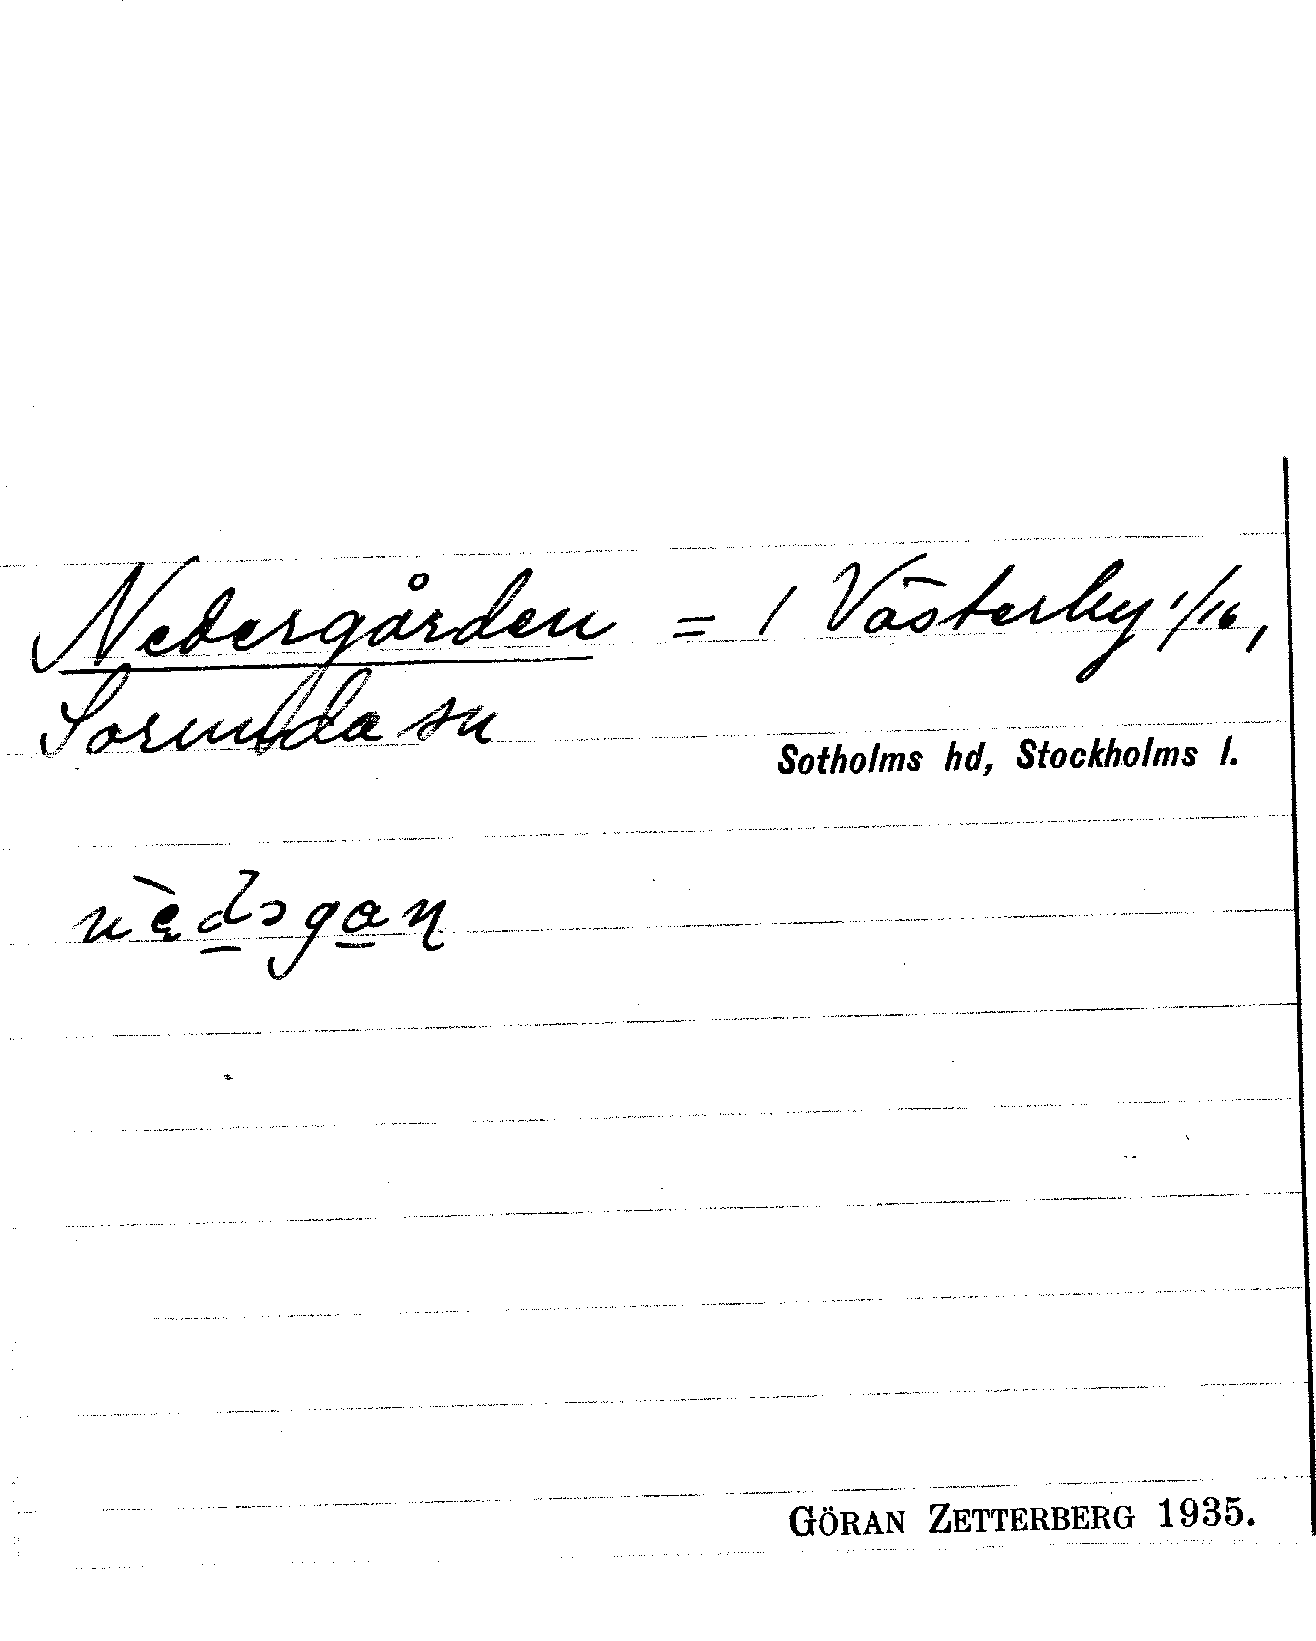 Nedergården = 1 Västerby 1/16,
Sorunda sn
Sotholms hd, Stockholms l.
nè̱d̲ɔga̲ɳ
GÖRAN ZETTERBERG 1935.